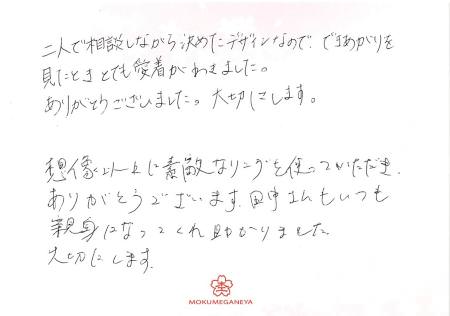 二人で相談しながら決めたデザインなので、できあがりを
見たときとても愛着がわきました。
ありがとうございました。大切にします。
想像以上に素敵なリングを使っていただき、
ありがとうございます。田中さんもいつも
親身になってくれ助かりました。
大切にします。
MOKUMEGANEYA